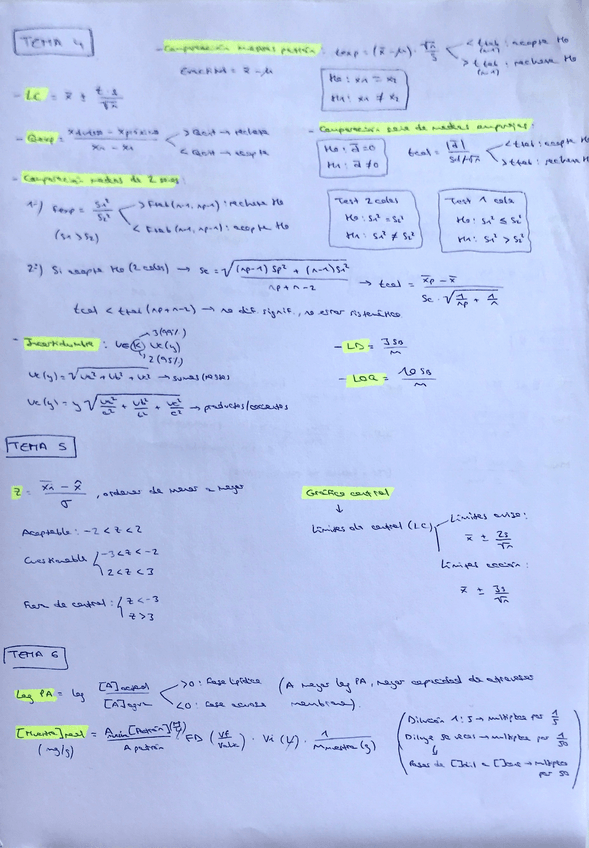 TEMA 4
- Comparación medias patrón: texp = (x̄ - μ) · √n/s < ttab (n-1) : acepta Ho
> ttab (n-1) : rechaza Ho
Exactitud = x̄ - μ
Ho: x1 = x2
H1: x1 ≠ x2
- LC = x̄ ± t·s/√n
- Qexp = xdudoso - xpróximo / xn - x1 > Qcrit → rechaza
< Qcrit → acepta
- Comparación para de medias emparejas:
Ho: d̄ = 0
H1: d̄ ≠ 0
tcal = |d̄| / sd/√n < ttab : acepta Ho
> ttab : rechaza Ho
- Comparación medias de 2
1º) Fexp = s1²/s2² > Ftab (n-1, np-1) : rechaza Ho
< Ftab (n-1, np-1) : acepta Ho
(s1 > s2)
Test 2 colas
Ho: s1² = s2²
H1: s1² ≠ s2²
Test 1 cola
Ho: s1² ≤ s2²
H1: s1² > s2²
2º) Si acepta Ho (2 colas) → sc = √((np-1) sp² + (n-1) s1² / np+n-2) → tcal = x̄p - x̄ / sc · √(1/np + 1/n)
tcal < ttab (np+n-2) → no dif. signif., no error sistemático
- Incertidumbre : U=(K) uc(y)
3 (99%)
2 (95%)
uc(y) = √(ua² + ub² + uc²) → sumas/restas
uc(y) = y √(ua²/a² + ub²/b² + uc²/c²) → productos/cocientes
- LD = 3s0/m
- LOQ = 10s0/m
TEMA 5
Z = x̄i - x̂ / σ, ordenar de menor a mayor
Aceptable: -2 < z < 2
Cuestionable -3 < z < -2
2 < z < 3
Fuera de control: z < -3
z > 3
Gráfico control
↓
Límites de control (LC)
Límites aviso:
x̄ ± 2s/√n
Límites acción:
x̄ ± 3s/√n
TEMA 6
Log PA = log [A]octanol / [A]agua > 0 : fase lipídica (A mayor log PA, mayor capacidad de atravesar
< 0 : fase acuosa membranas).
[Muestra]real = A [Patrón] / A patrón · FD (Vf/Valic) · Vi (L) · 1 / mmuestra (g)
(mg/g)
Dilución 1:5 → multiplica por 1/5
Diluye 50 veces → multiplica por 1/50
↓
Pasas de []dil a []ose → multiplica
por 50